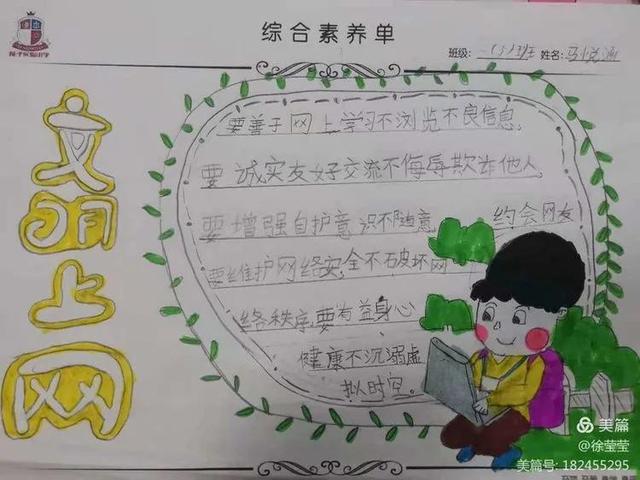 综合素养单
班级: 一(5)班 姓名: 马悦涵
文明上网
要善于网上学习不浏览不良信息,
要诚实友好交流不侮辱欺诈他人
要增强自护意识不随意约会网友
要维护网络安全不破坏网
络秩序,要有益身心
健康不沉溺虚
拟时空。
美篇
@徐莹莹
美篇号: 182455295